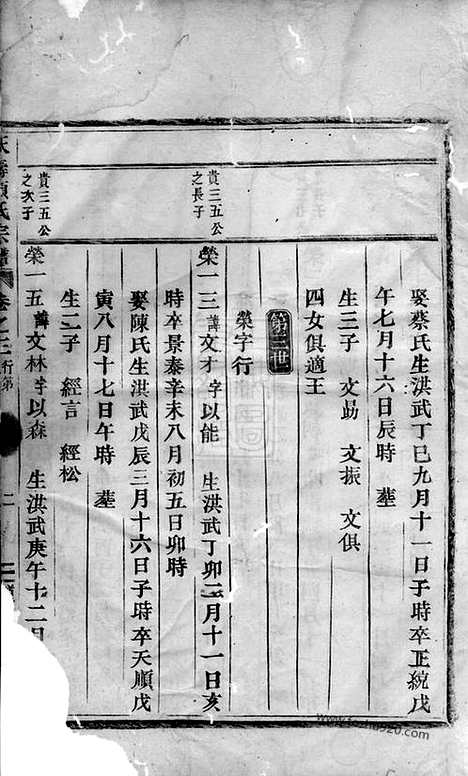 娶蔡氏生洪武丁巳九月十一日子時卒正統戊
午七月十六日辰時 塟
生三子 文勗 文振 文俱
四女俱適王
第二世
榮字行
貴三五公
之長子
榮一三 諱文才字以能 生洪武丁卯二月十一日亥
時卒景泰辛未八月初五日卯時
娶陳氏生洪武戊辰三月十六日子時卒天順戊
寅八月十七日午時 塟
生二子 經言 經松
貴三五公
之次子
榮一五 諱文林字以森 生洪武庚午十二月
氏宗譜 卷之二 行第 二